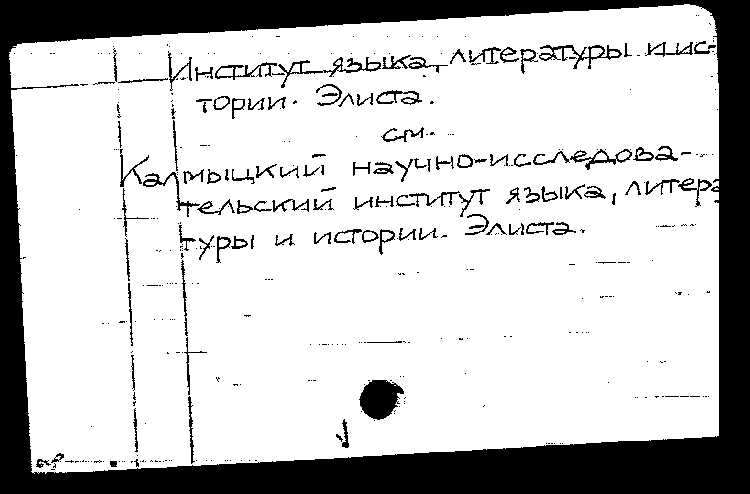 Институт языка, литературы и ис-
тории. Элиста.
см.
Калмыцкий научно-исследова-
тельский институт языка, литера
туры и истории. Элиста.